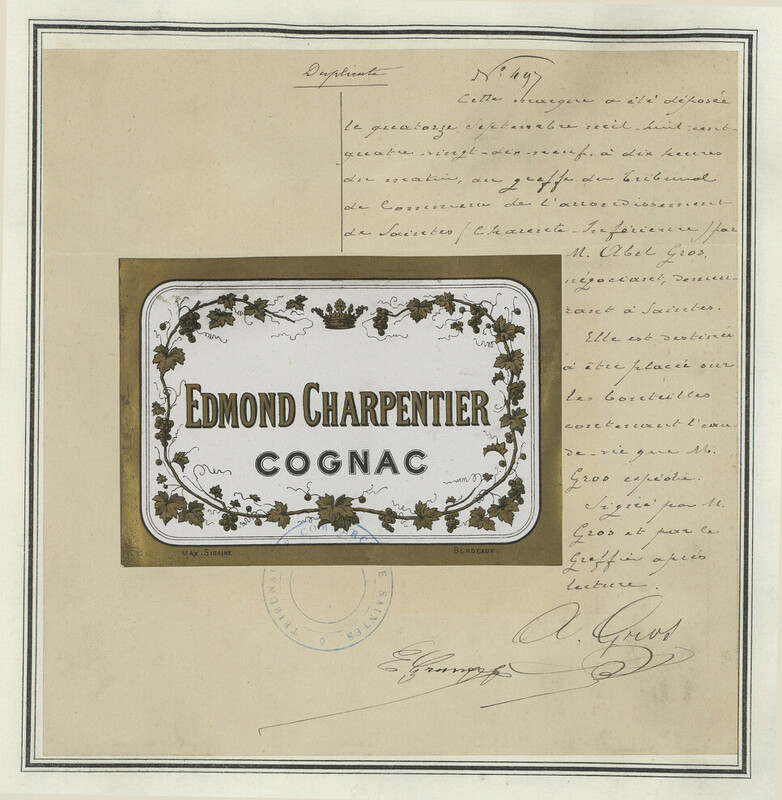 Duplicata
N° 497
Cette marque a été déposée
le quatorze Septembre mil-huit-cent-
quatre-vingt-dix-neuf, à dix heures
du matin, au greffe du Tribunal
de Commerce de l'arrondissement
de Saintes (Charente-Inférieure) par
M. Abel Gros,
négociant, demeu-
rant à Saintes.
Elle est destinée
à être placée sur
les bouteilles
contenant l'eau-
de-vie que M.
Gros expédie.
Signé par M.
Gros et par le
Greffier après
lecture.
EDMOND CHARPENTIER
COGNAC
MAX. SIRAINE
BORDEAUX
TRIBUNAL
COMMERCE
DE SAINTES
A. Gros